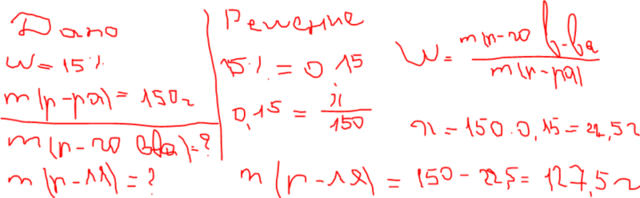 Дано
W=15%
m(р-ра)=150г
m(р-го в-ва)=?
m(р-ля)=?
Решение
15%=0,15
0,15=x/150
W=m(р-го в-ва)/m(р-ра)
x=150·0,15=22,5г
m(р-ля)=150-22,5=127,5г